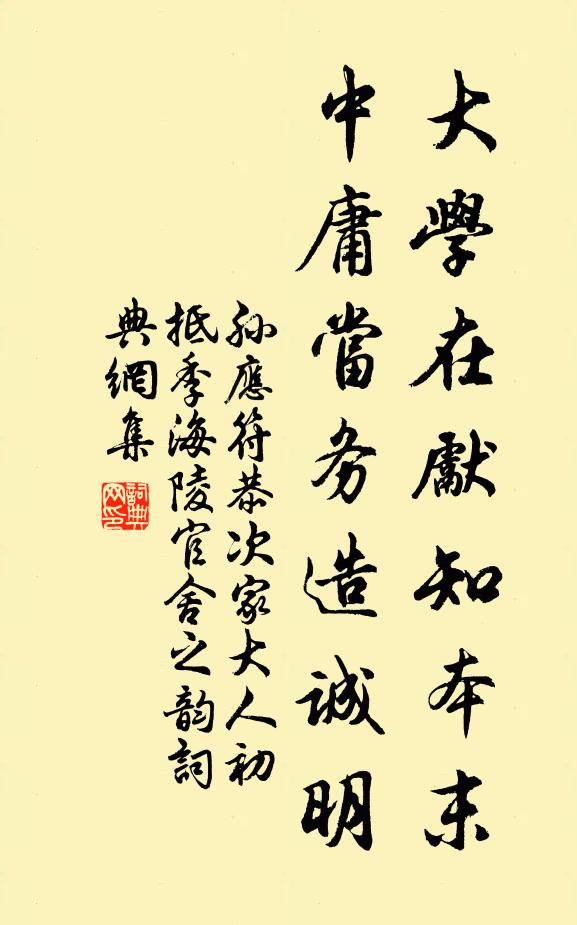 大學在獻知本末
中庸當务造誠明
孙應符恭次家大人初
抵季海陵官舍之韵詞
典網集
詞典网印